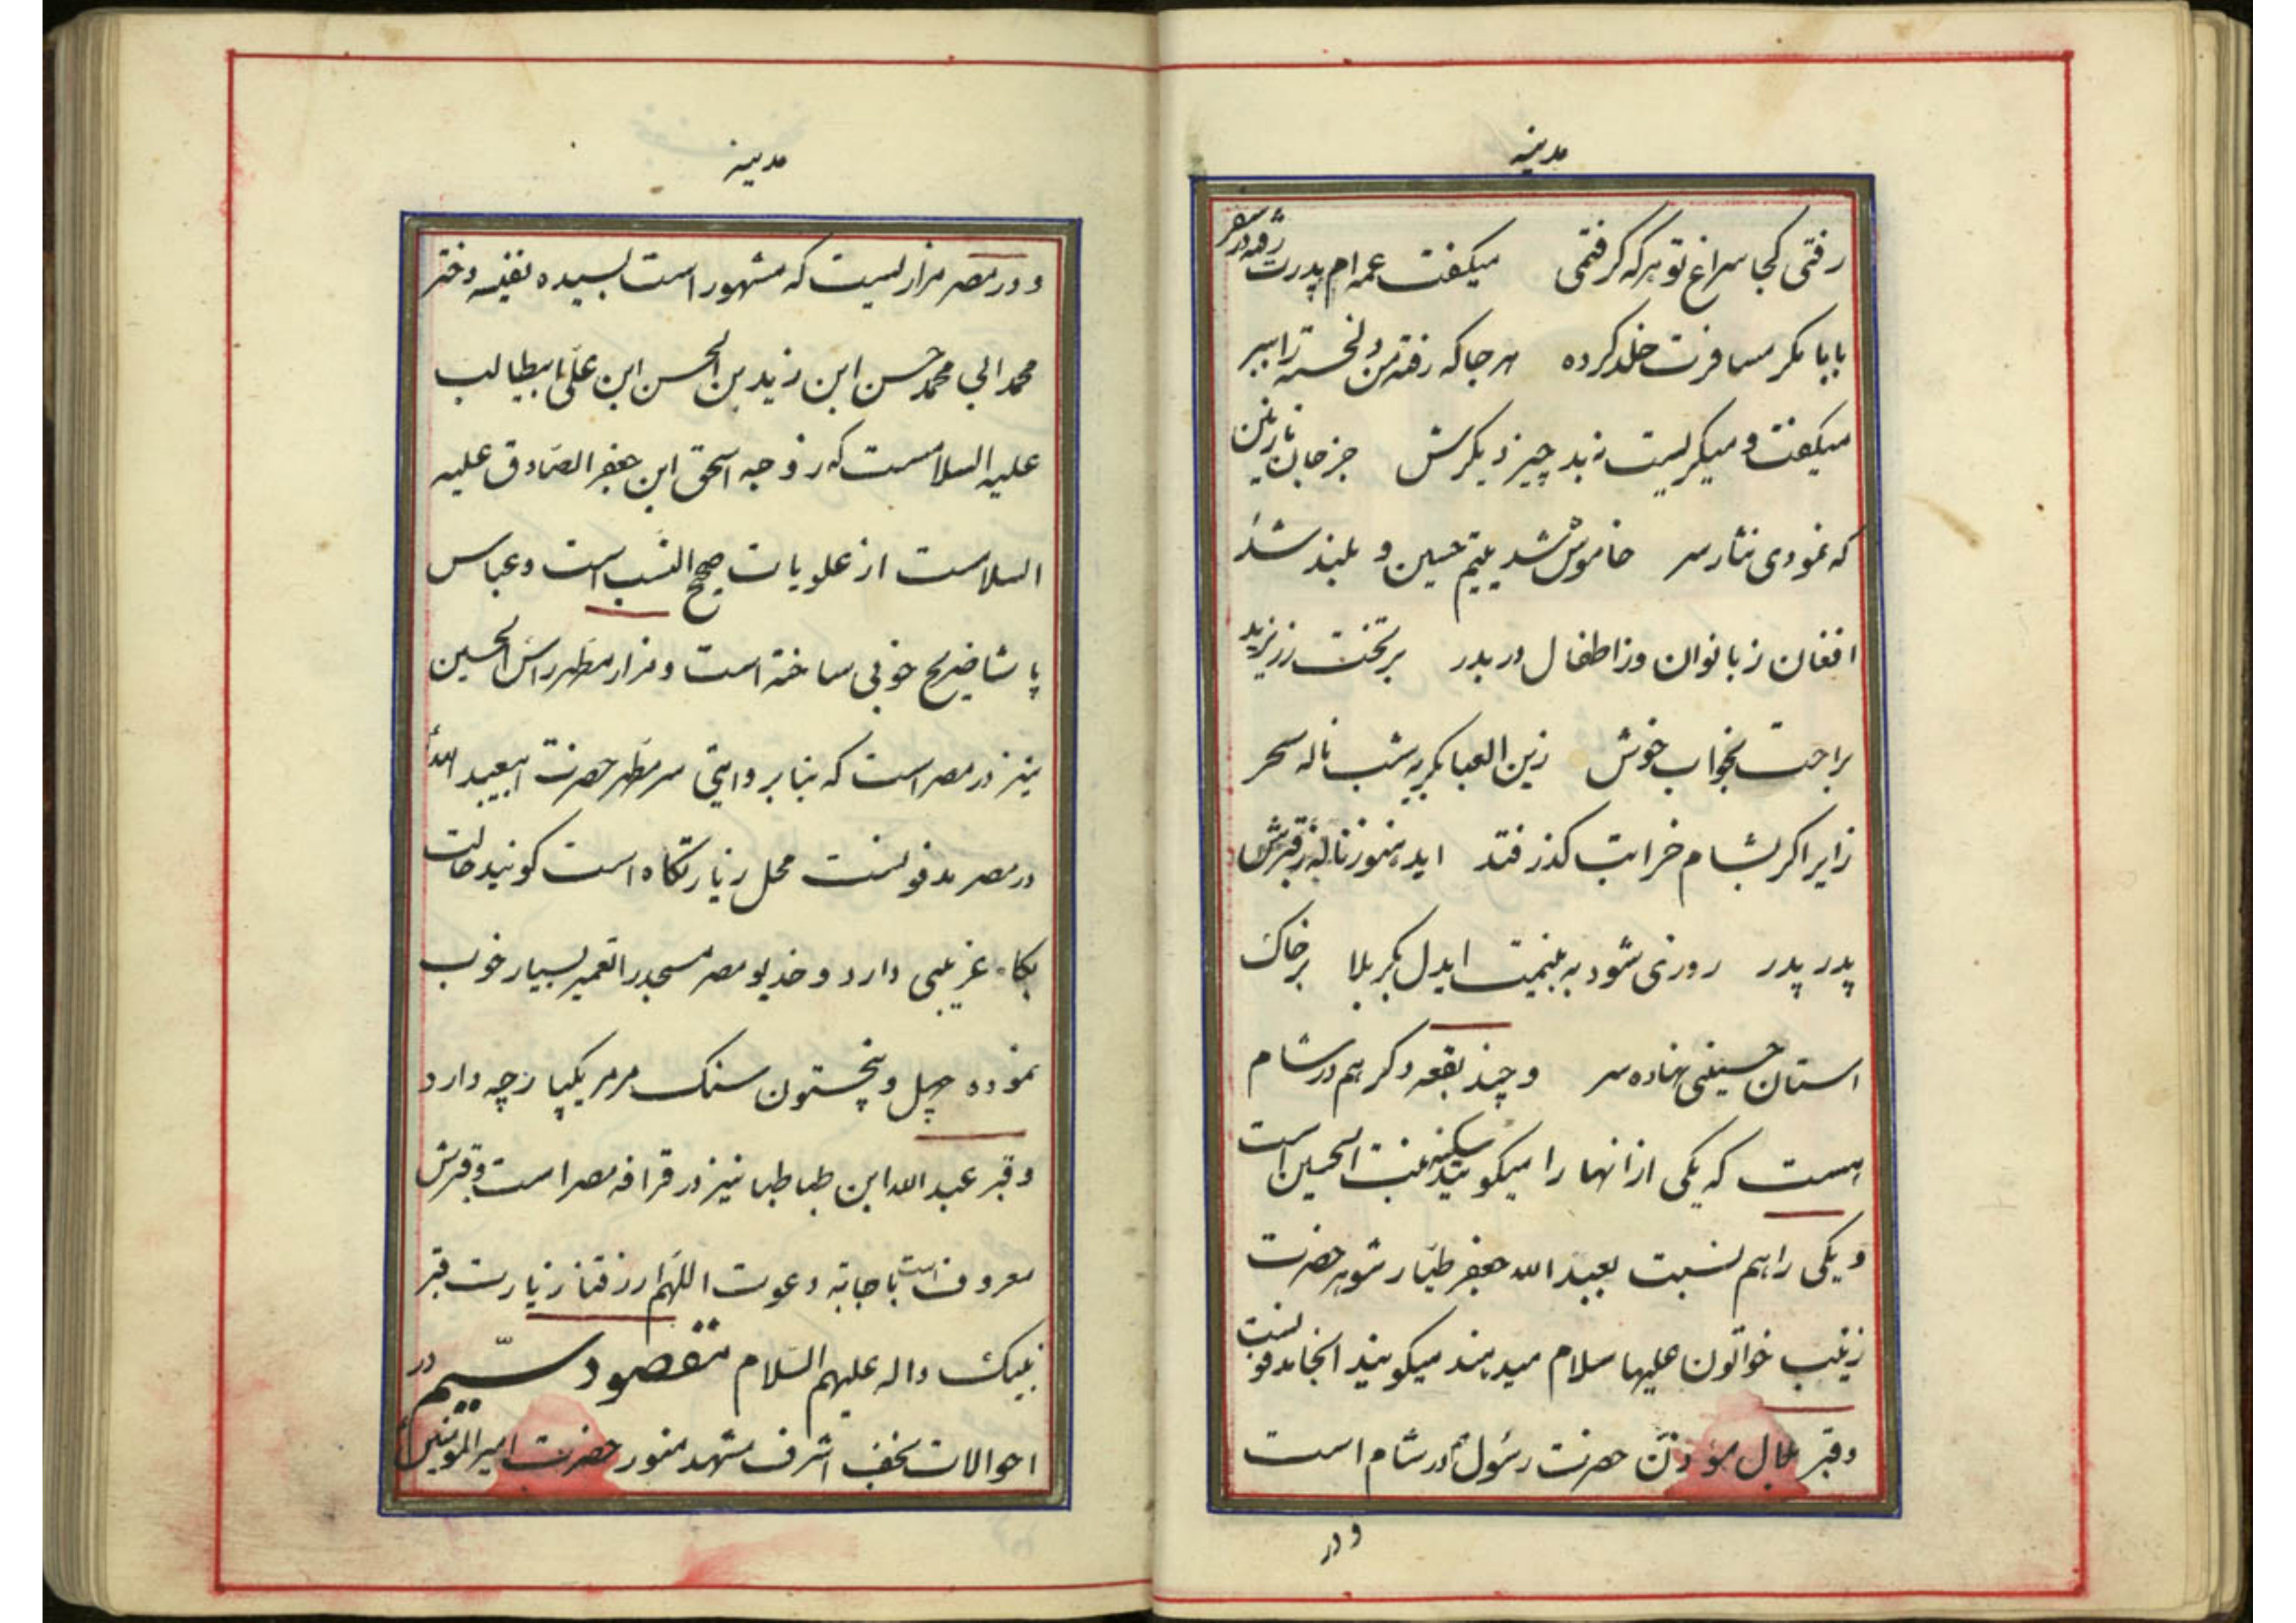 مدینه
رفتی کجا سراغ تو هر که گرفتمی میگفت عمه ام پدرت رفته در سفر
بابا مگر مسافرت خلد کرده هر جا که رفته من دلخسته را ببر
میگفت و میگریست نبد چیز دیگرش جز جان نازنین
که نمودی نثار سر خاموش شد یتیم حسین و بلند شد
افغان ز بانوان وز اطفال در بدر بر تخت زر یزید
براحت بخواب خوش زین العبا بگریه شب ناله سحر
زایر اگر بشام خرابت گذر فتد اید هنوز ناله ز قبرش
پدر پدر روزی شود به بینمت ایدل بکربلا بر خاک
استان حسینی نهاده سر و چند بقعه دکر هم در شام
هست که یکی از انها را میکویند سکینه بنت الحسین است
و یکی را هم نسبت بعبد الله جعفر طیار شوهر حضرت
زینب خواتون علیها سلام میدهند میکویند انجا مدفونست
و قبر بلال مؤذن حضرت رسول در شام است
و در
مدینه
و در مصر مزاریست که مشهور است بسیده نفیسه دختر
محمد ابی محمد حسن ابن زید بن الحسن ابن علی ابیطالب
علیه السلامست که زوجه اسحق ابن جعفر الصادق علیه
السلامست از علویات صحیح النسب است و عباس
پاشا ضریح خوبی ساخته است و مزار مطهر راس الحسین
نیز در مصر است که بنا بر وایتی سر مطهر حضرت ابیعبد الله
در مصر مدفونست محل زیارتکاه است کویند حالت
بکاء غریبی دارد و خدیو مصر مسجد را تعمیر بسیار خوب
نموده چهل و پنجستون سنک مرمر یکپارچه دارد
و قبر عبد الله ابن طباطبا نیز در قرافه مصر است و قبرش
معروف است باجابة دعوت اللهم ارزقنا زیارت قبر
نبیک و اله علیهم السلام مقصود سیم در
احوالات نجف اشرف مشهد منور حضرت امیر المؤمنین